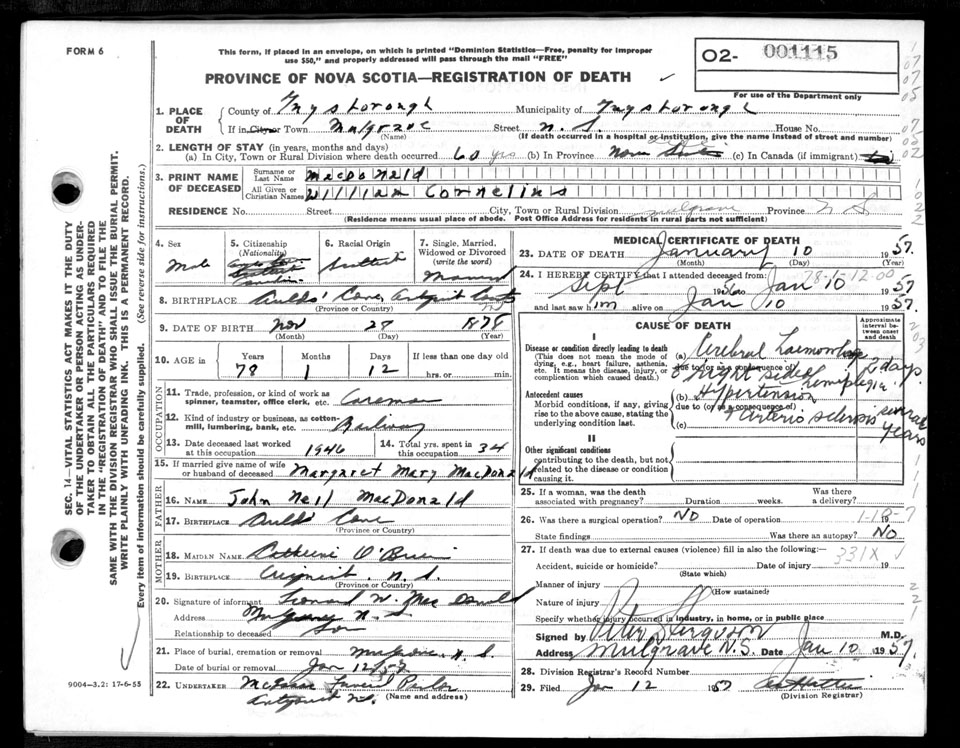 FORM 6
This form, if placed in an envelope, on which is printed "Dominion Statistics—Free, penalty for improper
use $50," and properly addressed will pass through the mail "FREE"
O2- 001115
For use of the Department only
PROVINCE OF NOVA SCOTIA—REGISTRATION OF DEATH
1. PLACE OF DEATH
County of Guysborough Municipality of Guysborough
If in City or Town Mulgrave Street N. S. House No.
(Name) (If death occurred in a hospital or institution, give the name instead of street and number)
2. LENGTH OF STAY (in years, months and days)
(a) In City, Town or Rural Division where death occurred 60 yrs (b) In Province Nova Scotia (c) In Canada (if immigrant)
3. PRINT NAME OF DECEASED
Surname or Last Name MacDonald
All Given or Christian Names William Cornelius
RESIDENCE No. Street City, Town or Rural Division Mulgrave Province N S
(Residence means usual place of abode. Post Office Address for residents in rural parts not sufficient)
4. Sex Male
5. Citizenship (Nationality) Canadian
6. Racial Origin Scottish
7. Single, Married, Widowed or Divorced (write the word) Married
8. BIRTHPLACE Aulds' Cove, Antigonish County
(Province or Country)
9. DATE OF BIRTH Nov 27 1878
(Month) (Day) (Year)
10. AGE in Years 78 Months 1 Days 12 If less than one day old hrs. or min.
OCCUPATION
11. Trade, profession, or kind of work as spinner, teamster, office clerk, etc. Careman
12. Kind of industry or business, as cotton-mill, lumbering, bank, etc. Railway
13. Date deceased last worked at this occupation 1946
14. Total yrs. spent in this occupation 34
15. If married give name of wife or husband of deceased Margaret Mary MacDonald
FATHER
16. NAME John Neil MacDonald
17. BIRTHPLACE Aulds Cove
MOTHER
18. MAIDEN NAME Catherine O'Brien
19. BIRTHPLACE N. S.
(Province or Country)
20. Signature of informant Leonard W. MacDonald
Address Mulgrave N. S
Relationship to deceased Son
21. Place of burial, cremation or removal Mulgrave, N. S.
Date of burial or removal Jan 12/57
22. UNDERTAKER Funeral Parlor
(Name and address)
Antigonish N.S.
MEDICAL CERTIFICATE OF DEATH
23. DATE OF DEATH January 10 1957
(Month) (Day) (Year)
24. I HEREBY CERTIFY that I attended deceased from:
Sept 1956 to Jan 10 1957
and last saw him alive on Jan 10 1957.
CAUSE OF DEATH
Approximate interval between onset and death
I
Disease or condition directly leading to death
(This does not mean the mode of dying, e.g., heart failure, asthenia, etc. It means the disease, injury, or complication which caused death.)
(a) Cerebral haemorrhage 2 days.
due to (or as a consequence of)
right sided hemiplegia
Antecedent causes
Morbid conditions, if any, giving rise to the above cause, stating the underlying condition last.
(b) Hypertension
due to (or as a consequence of)
(c) Arterio sclerosis several years
II
Other significant conditions
contributing to the death, but not related to the disease or condition causing it.
25. If a woman, was the death associated with pregnancy? Duration weeks. Was there a delivery?
26. Was there a surgical operation? NO Date of operation 19
State findings Was there an autopsy? NO
1-18-7
27. If death was due to external causes (violence) fill in also the following:—
331X
Accident, suicide or homicide? Date of injury 19
(State which)
Manner of injury
(How sustained)
Nature of injury
Specify whether injury occurred in industry, in home, or in public place
Signed by Peter Ferguson M.D.
Address Mulgrave N.S. Date Jan 10 1957.
28. Division Registrar's Record Number
29. Filed Jan 12 1957
(Division Registrar)
SEC. 14—VITAL STATISTICS ACT MAKES IT THE DUTY
OF THE UNDERTAKER OR PERSON ACTING AS UNDER-
TAKER TO OBTAIN ALL THE PARTICULARS REQUIRED
IN THE "REGISTRATION OF DEATH" AND TO FILE THE
SAME WITH THE DIVISION REGISTRAR WHO SHALL ISSUE THE BURIAL PERMIT.
WRITE PLAINLY WITH UNFADING INK. THIS IS A PERMANENT RECORD.
Every item of information should be carefully supplied. (See reverse side for instructions.)
9004—3.2: 17-6-55